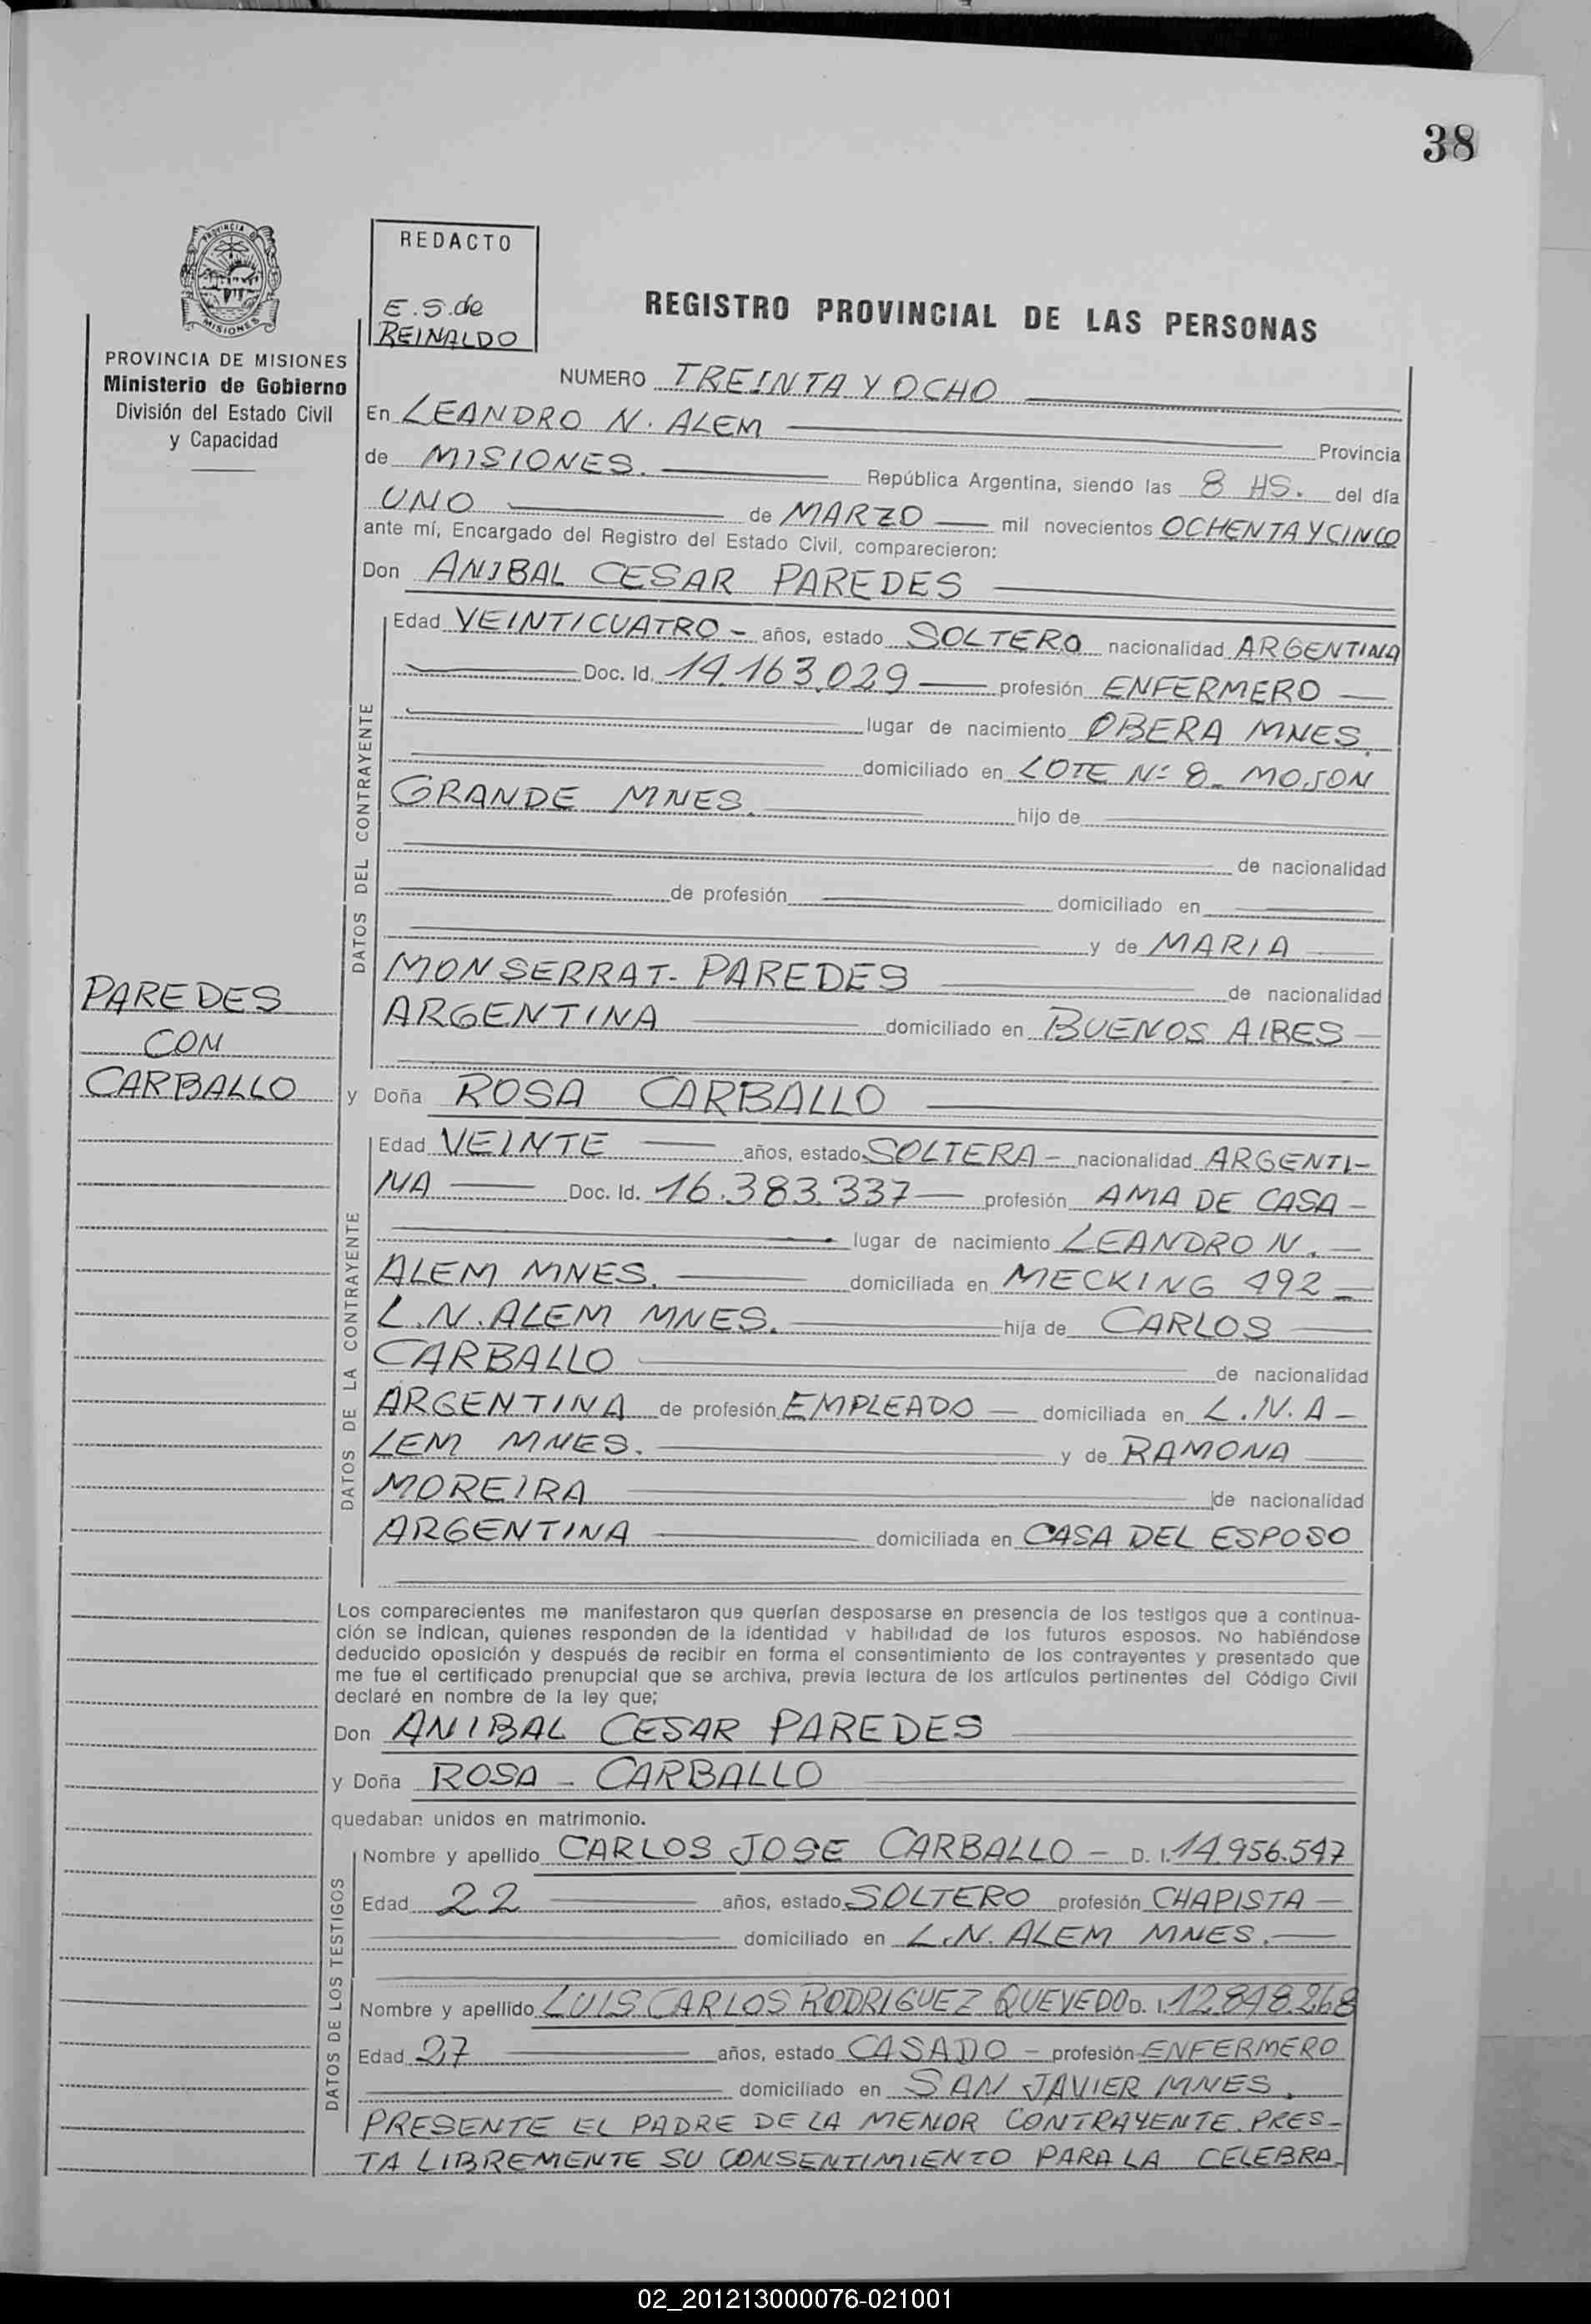 38
REDACTO
E.S.de
REINALDO
PROVINCIA DE MISIONES
MISIONES
PROVINCIA DE MISIONES
Ministerio de Gobierno
División del Estado Civil
y Capacidad
REGISTRO PROVINCIAL DE LAS PERSONAS
NUMERO TREINTA Y OCHO
En LEANDRO N. ALEM Provincia
de MISIONES. República Argentina, siendo las 8 HS. del día
UNO de MARZO mil novecientos OCHENTA Y CINCO
ante mí, Encargado del Registro del Estado Civil, comparecieron:
Don ANIBAL CESAR PAREDES
DATOS DEL CONTRAYENTE
Edad VEINTICUATRO - años, estado SOLTERO nacionalidad ARGENTINA
Doc. Id. 14.163.029 profesión ENFERMERO
lugar de nacimiento OBERA MNES.
domiciliado en LOTE Nº 8 - MOJON
GRANDE MNES. hijo de
de nacionalidad
de profesión domiciliado en
y de MARIA
MONSERRAT- PAREDES de nacionalidad
ARGENTINA domiciliado en BUENOS AIRES
PAREDES
CON
CARBALLO
y Doña ROSA CARBALLO
DATOS DE LA CONTRAYENTE
Edad VEINTE años, estado SOLTERA - nacionalidad ARGENTI-
NA Doc. Id. 16.383.337 profesión AMA DE CASA -
lugar de nacimiento LEANDRO N. -
ALEM MNES. domiciliada en MECKING 492 -
L.N. ALEM MNES. hija de CARLOS
CARBALLO de nacionalidad
ARGENTINA de profesión EMPLEADO - domiciliada en L.N. A-
LEM MNES. y de RAMONA
MOREIRA de nacionalidad
ARGENTINA domiciliada en CASA DEL ESPOSO
Los comparecientes me manifestaron que querían desposarse en presencia de los testigos que a continua-
ción se indican, quienes responden de la identidad y habilidad de los futuros esposos. No habiéndose
deducido oposición y después de recibir en forma el consentimiento de los contrayentes y presentado que
me fue el certificado prenupcial que se archiva, previa lectura de los artículos pertinentes del Código Civil
declaré en nombre de la ley que;
Don ANIBAL CESAR PAREDES
y Doña ROSA - CARBALLO
quedaban unidos en matrimonio.
DATOS DE LOS TESTIGOS
Nombre y apellido CARLOS JOSE CARBALLO - D. I. 14.956.547
Edad 22 años, estado SOLTERO profesión CHAPISTA -
domiciliado en L.N. ALEM MNES.
Nombre y apellido LUIS CARLOS RODRIGUEZ QUEVEDO D. I. 12.848.268
Edad 27 años, estado CASADO - profesión ENFERMERO
domiciliado en SAN JAVIER MNES.
PRESENTE EL PADRE DE LA MENOR CONTRAYENTE. PRES-
TA LIBREMENTE SU CONSENTIMIENTO PARA LA CELEBRA-
02_201213000076-021001